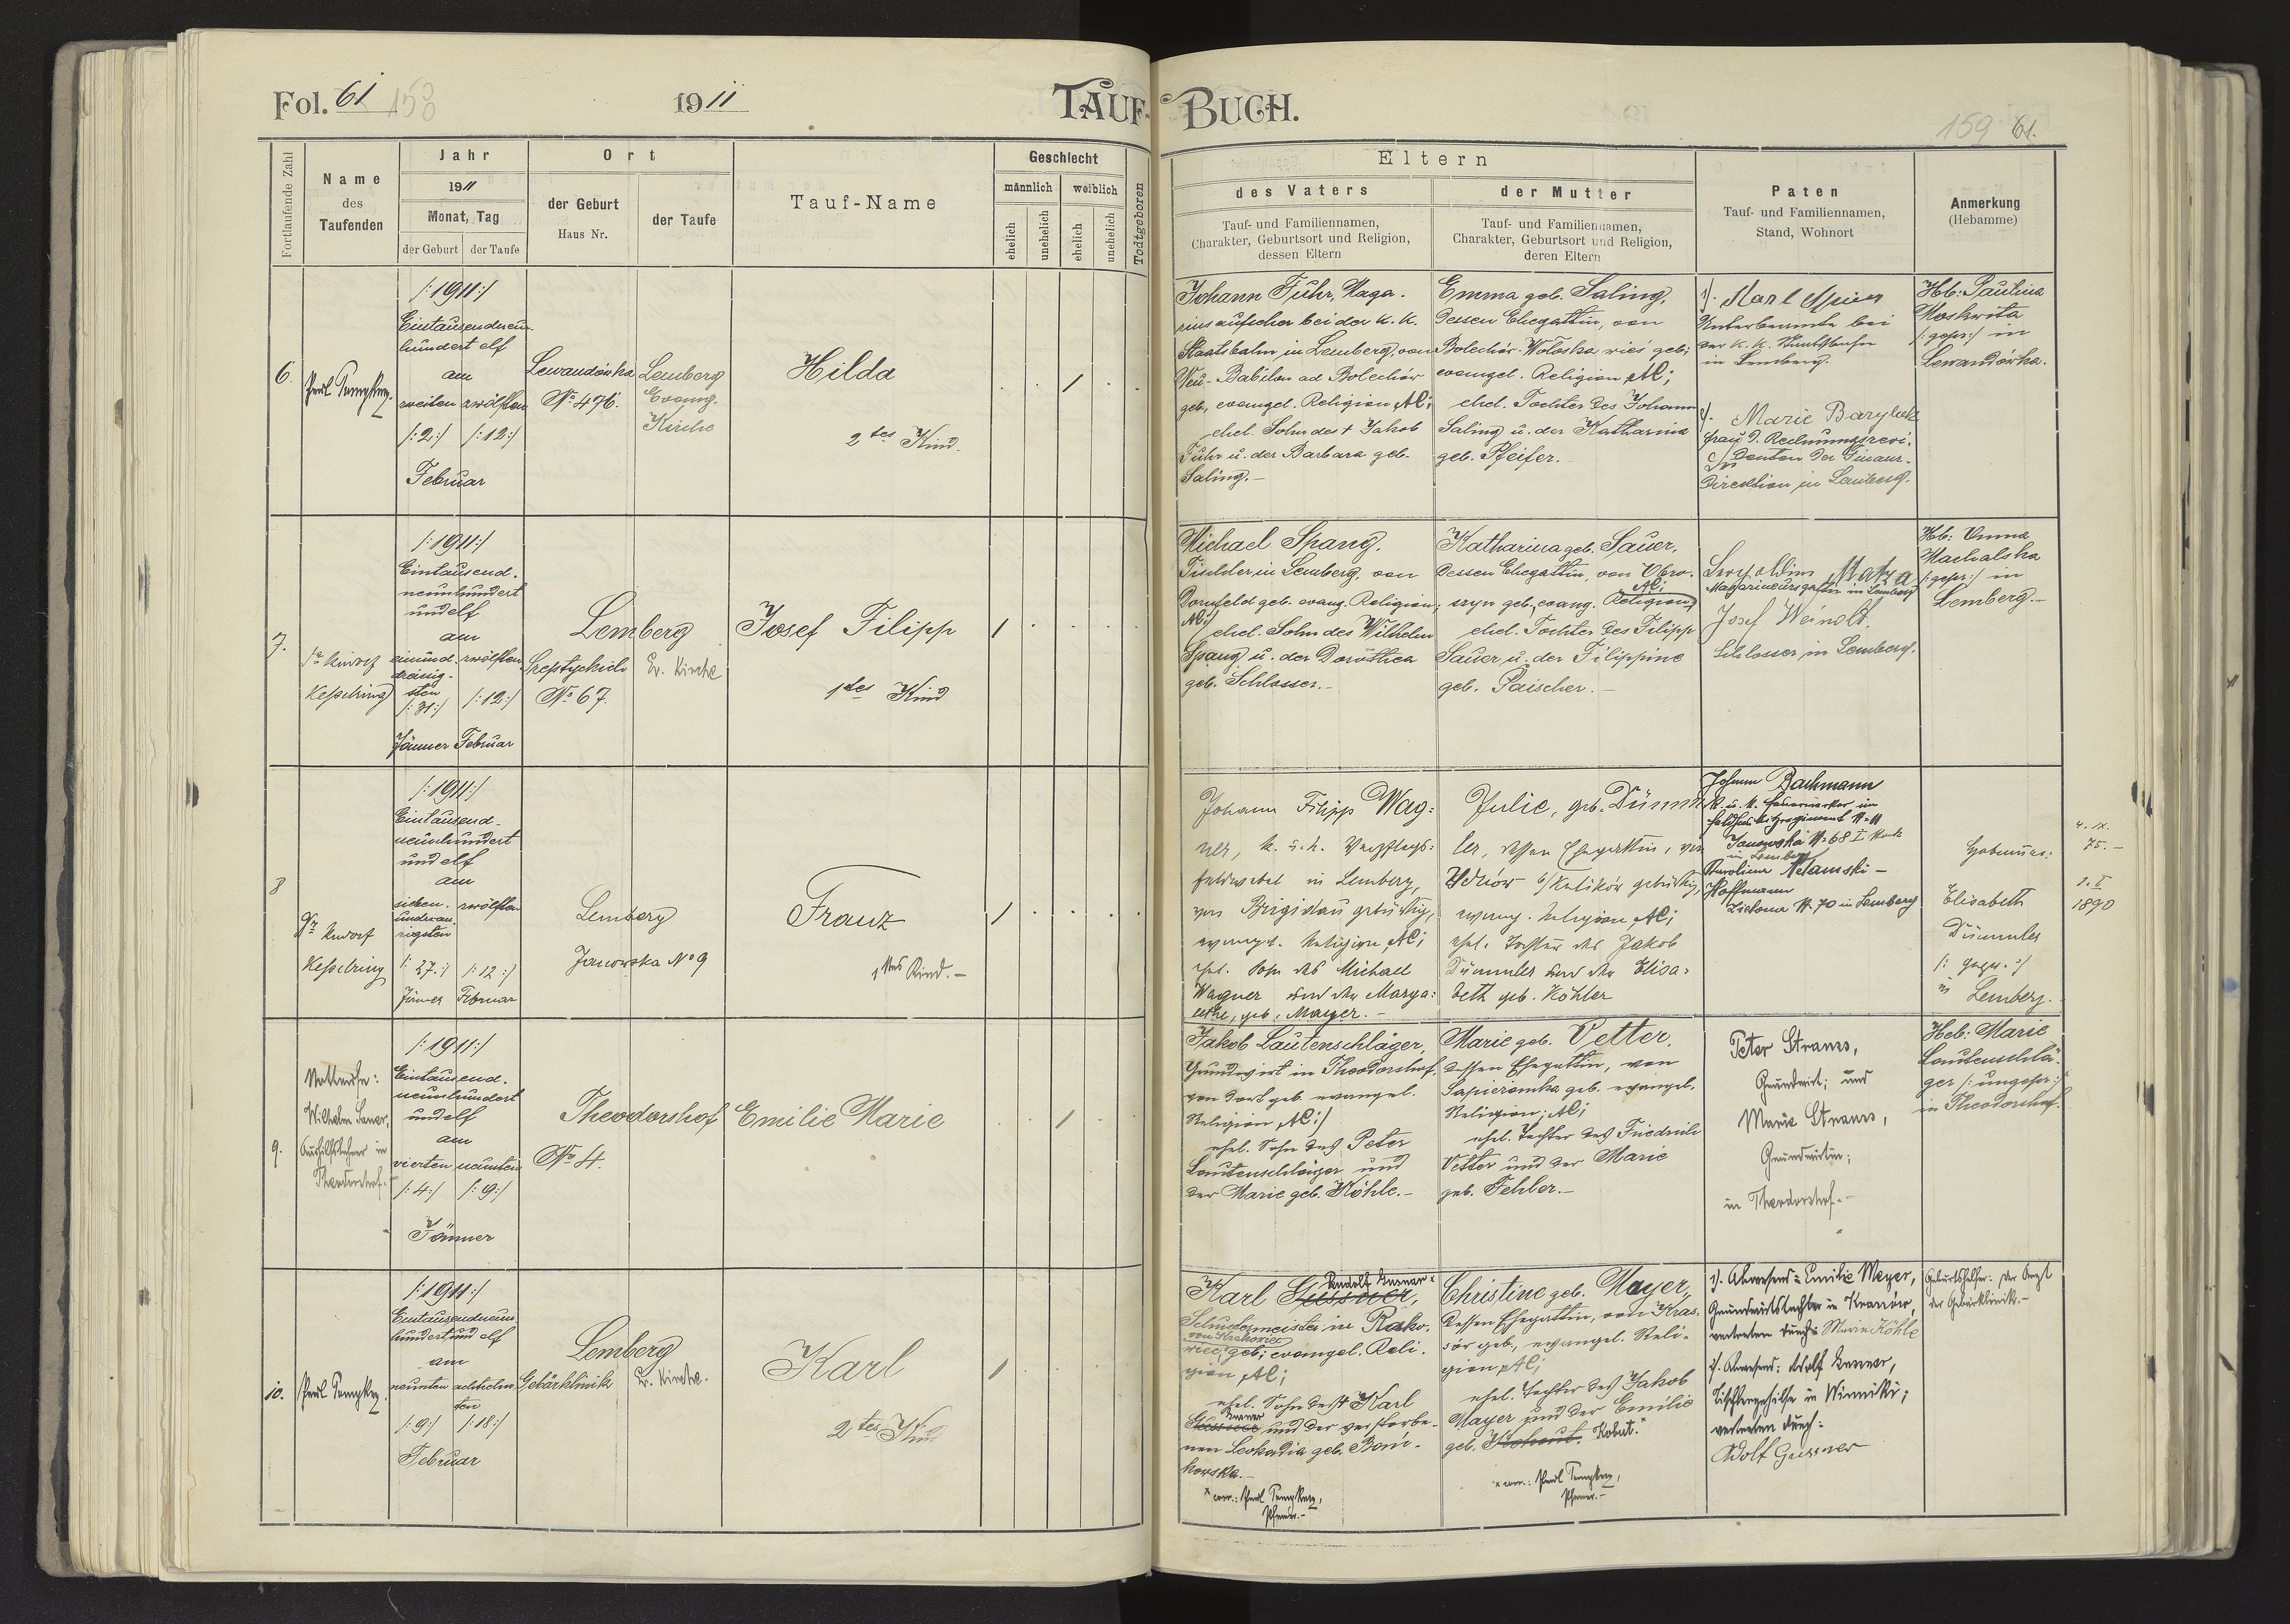 Fol. 61 158
1911
TAUF-BUCH.
159 61.
Fortlaufende Zahl
Name
des
Taufenden
Jahr
1911
Monat, Tag
der Geburt
der Taufe
Ort
der Geburt
Haus Nr.
der Taufe
Tauf-Name
Geschlecht
männlich
weiblich
ehelich
unehelich
ehelich
unehelich
Todtgeboren
Eltern
des Vaters
Tauf- und Familiennamen,
Charakter, Geburtsort und Religion,
dessen Eltern
der Mutter
Tauf- und Familiennamen,
Charakter, Geburtsort und Religion,
deren Eltern
Paten
Tauf- und Familiennamen,
Stand, Wohnort
Anmerkung
(Hebamme)
6.
/:1911:/
Eintausendneun-
hundert elf
am
zweiten
/:2:/
zwölften
/:12:/
Februar
Lewandówka
No 476.
Lemberg
Evang.
Kirche
Hilda
2tes Kind.
Johann Fuhr, Maga-
zinsaufseher bei der k. k.
Staatsbahn in Lemberg, von
Neu-Babilon ad Bolechów
geb., evangel. Religion AC;
ehel. Sohn des † Jakob
Fuhr u. der Barbara geb.
Saling.-
Emma geb. Saling,
dessen Ehegattin, von
Bolechów-Wołoska wieś geb;
evangel. Religion AC;
ehel. Tochter des Johann
Saling u. der Katharina
geb. Pfeifer.-
1). Karl
Unterbeamte bei
der k. k. Staatsbahn
in Lemberg.
2). Marie
Frau d. Rechnungsrevi-
denten der Finanz-
Direktion in Lemberg.
Hb: Paulina
Moskwita
/:gepr:/ in
Lewandówka.
7.
Dr Rudolf
Kesselring
/:1911:/
Eintausend-
neunhundert
und elf
am
einund-
dreissig-
sten
/:31:/
Jänner
zwölften
/:12:/
Februar
Lemberg
Szeptyckich
No 67.
Ev. Kirche
Josef Filipp
1tes Kind
Michael Spang,
Tischler in Lemberg, von
Dornfeld geb. evang. Religion
AC;
ehel. Sohn des Wilhelm
Spang u. der Dorothea
geb. Schlosser.-
Katharina geb. Sauer,
dessen Ehegattin, von Obro-
szyn geb., evang. Religion AC;
ehel. Tochter des Filipp
Sauer u. der Filippine
geb. Paischer.-
Leopoldine Matza
in Lemberg
Josef Weinolt.
Schlosser in Lemberg.
Hb: Emma
Machalska
/:gepr:/ in
Lemberg.-
8
Dr Rudolf
Kesselring
/:1911:/
Eintausend-
neunhundert
und elf
am
sieben-
undzwan-
zigsten
/:27:/
Jänner
zwölften
/:12:/
Februar
Lemberg
Janowska No 9
Franz
1tes Kind.-
Johann Filipp Wag-
ner, k. u. k. Verpflegs-
feldwebel in Lemberg,
von Brigidau gebürtig,
evangel. Religion, AC;
ehel. Sohn des Michael
Wagner und der Marga-
rethe, geb. Mayer.-
Julie, geb. Dümm-
ler, dessen Ehegattin, von
Uchów b/Kulików gebürtig,
evang. Religion, AC;
ehel. Tochter des Jakob
Dümmler und der Elisa-
beth geb. Köhler
Johann Bachmann
k. u. k. Feuerwerker im
Feldhaubitzregiment No 11
Janowska No 68 I Stock
in Lemberg
Karolina Adamski-
Hoffmann
Zielona No 70 in Lemberg
Hebamme:
Elisabeth
Dümmler
/: gepr. :/
in Lemberg.
4. IX.
75.-
1. I
1890
9.
Nottaufe:
Wilhelm Sauer,
Aushilfslehrer in
Theodorshof.
/:1911:/
Eintausend-
neunhundert
und elf
am
vierten
/:4:/
neunten
/:9:/
Jänner
Theodorshof
No 4.
Emilie Marie
Jakob Lautenschläger,
Grundwirt in Theodorshof,
von dort geb. evangel.
Religion AC:/
ehel. Sohn des Peter
Lautenschläger und
der Marie geb. Köhle.-
Marie geb. Vetter,
dessen Ehegattin, von
Sapieżanka geb. evangel.
Religion; AC;
ehel. Tochter des Friedrich
Vetter und der Marie
geb. Fehler.-
Peter Strauss,
Grundwirt; und
Marie Strauss,
Grundwirtin;
in Theodorshof.-
Heb: Marie
Lautenschlä-
ger /:ungepr:/
in Theodorshof.
10.
/:1911:/
Eintausendneun-
hundert und elf
am
neunten
/:9:/
achtzehn-
ten
/:18:/
Februar
Lemberg
Gebärklinik
Ev. Kirche.
Karl
2tes Kind
Karl Gussner,
Schustermeister in Rako-
wiec, geb; evangel. Reli-
gion AC;
ehel. Sohn des † Karl
Gussner und der verstorbe-
nen Leokadia geb. Boni-
kowska.-
Christine geb. Mayer,
dessen Ehegattin, von Kras-
sów geb., evangel. Reli-
gion AC;
ehel. Tochter des Jakob
Mayer und der Emilie
geb. Kohout. Kobut.x
1). Abwesend: Emilie Meyer,
Grundwirtstochter in Krassów,
vertreten durch: Marie Köhle
2). Abwesend: Adolf
Tischlergehilfe in Winniki;
vertreten durch:
Adolf Gussner
Geburtshelfer: der Arzt
der Gebärklinik.-